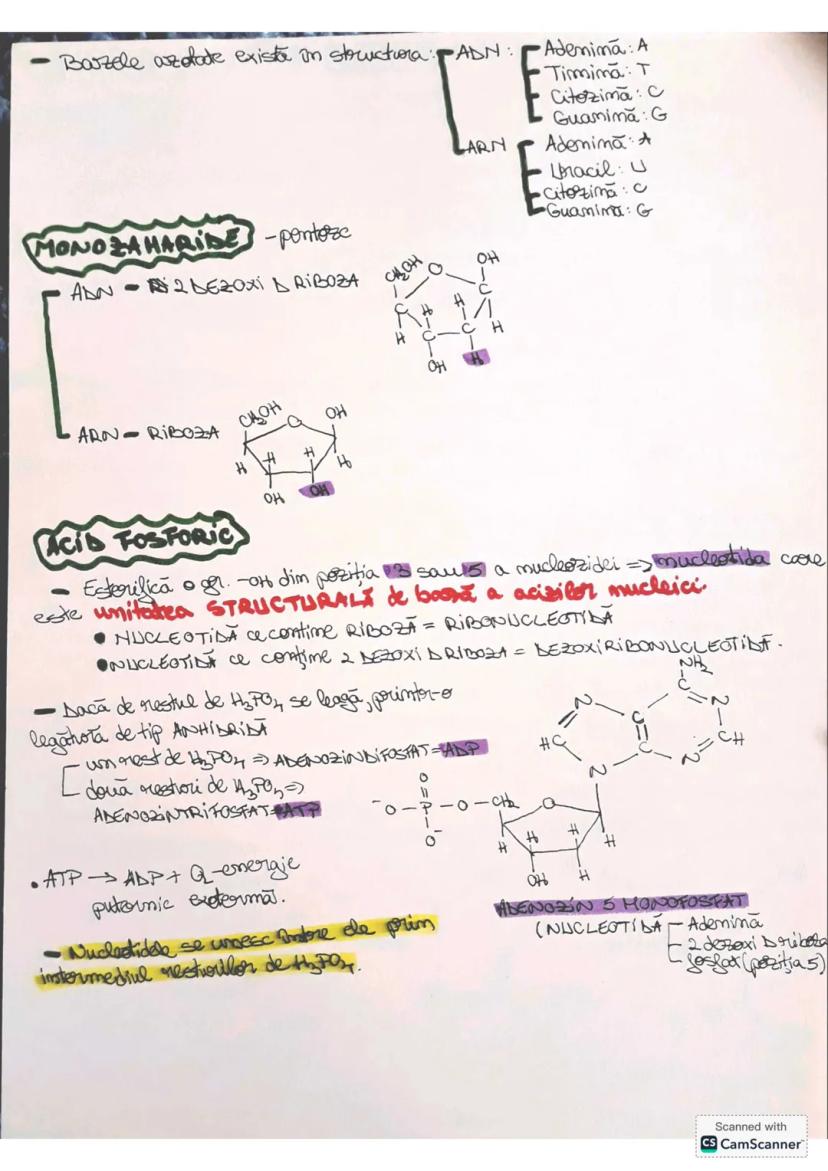 - Bazele azotate există în structura: ADN: Adenină: A
Timină: T
Citozină: C
Guanină: G
ARN Adenină: A
Uracil: U
Citozină: C
Guanină: G
MONOZAHARIDE - pentoze
ADN - 2 DEZOXI D RIBOZA
CH2OH O OH
C C
H H H H
C - C
OH H
ARN - RIBOZA
CH2OH O OH
H H H H
OH OH
ACID FOSFORIC
- Esterifică o gr. -OH din poziția 3 sau 5 a nucleozidei => nucleotida care
este unitatea STRUCTURALĂ de bază a acizilor nucleici.
• NUCLEOTIDĂ ce conține RIBOZĂ = RIBONUCLEOTIDĂ
• NUCLEOTIDĂ ce conține 2 DEZOXI D RIBOZA = DEZOXIRIBONUCLEOTIDĂ.
- Dacă de restul de H3PO4 se leagă, printr-o
legătură de tip ANHIDRIDĂ
un rest de H3PO4 => ADENOZINDIFOSFAT = ADP
două resturi de H3PO4 =>
ADENOZINTRIFOSFAT = ATP
NH2
N C N
HC C CH
C N
N
O
-O - P - O - CH2 O
O-
H H H H
OH H
• ATP → ADP + Q - energie
puternic exotermă.
ADENOZIN 5 MONOFOSFAT
(NUCLEOTIDĂ Adenină
2 dezoxi D riboza
fosfat (poziția 5)
- Nucleotidele se unesc între ele prin
intermediul resturilor de H3PO4.
Scanned with
CS CamScanner